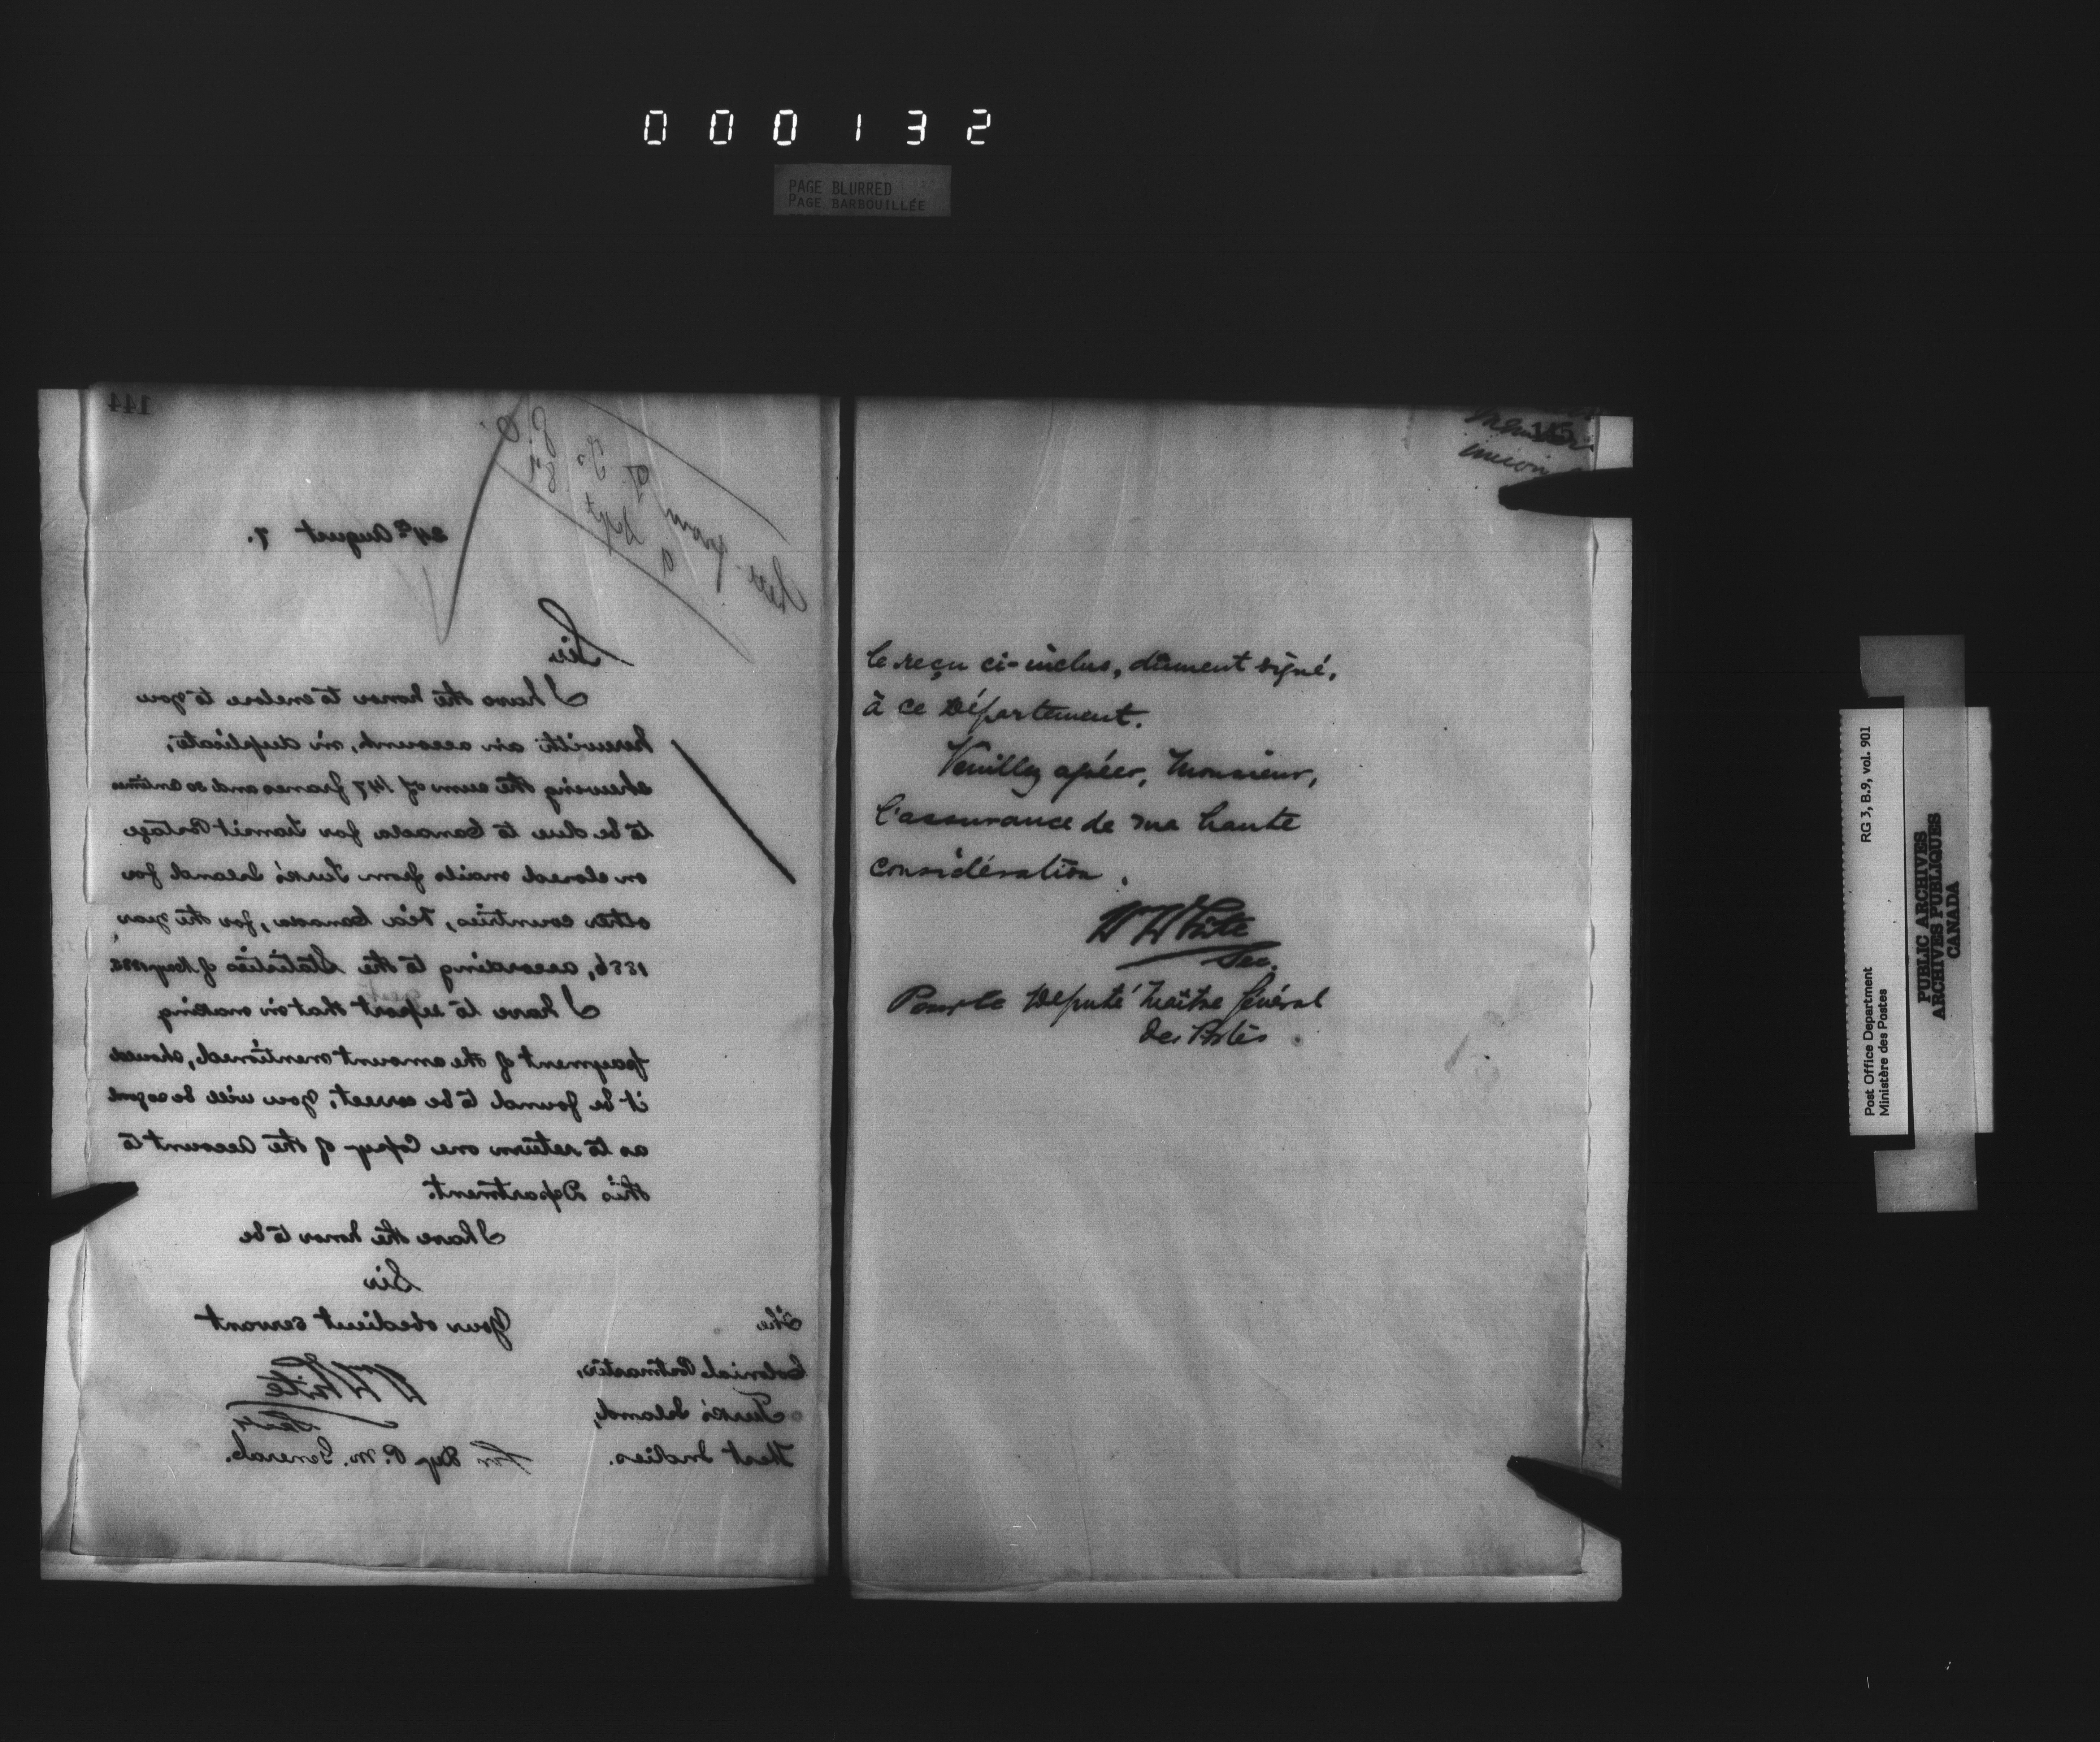 000132
PAGE BLURRED
PAGE BARBOUILLÉE
144
24th August 7.
Sir
I have the honor to enclose to you
herewith an account, in duplicate,
shewing the sum of 147 francs and 20 centimes
to be due to Canada for Transit Postage
on closed mails from Turk's Island for
other countries, via Canada, for the year
1886, according to the Statistics of May 1885
I have to report that on making
payment of the amount mentioned, should
it be found to be correct, you will be so good
as to return one Copy of the Account to
this Department.
I have the honor to be
Sir
Your obedient servant
W White
Secy
For Dep P. M. General.
The
Colonial Postmaster,
Turk's Island,
West Indies.
le reçu ci-inclus, dûment signé,
à ce Département.
Veuillez agréer, Monsieur,
l'assurance de ma haute
considération.
W White
Sec.
Pour le Député Maître Général
des Postes.
Post Office Department RG 3, B.9, vol. 901
Ministère des Postes
PUBLIC ARCHIVES
ARCHIVES PUBLIQUES
CANADA